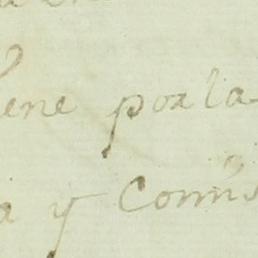 ene por la
a y Comis